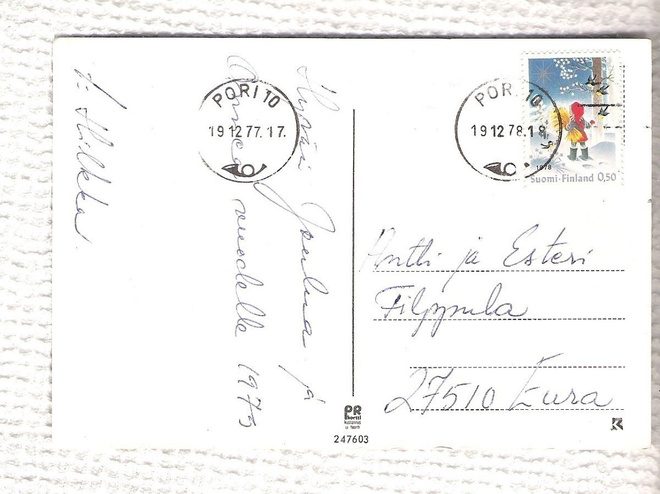 Hyvää Joulua ja
Onnea vuodelle 1975
t: Hilkka
PORI 10
19 12 77. 17.
PORI 10
19 12 78. 18
1978
Suomi-Finland 0,50
Antti ja Esteri
Filppula
27510 Eura
PR
kortti
247603